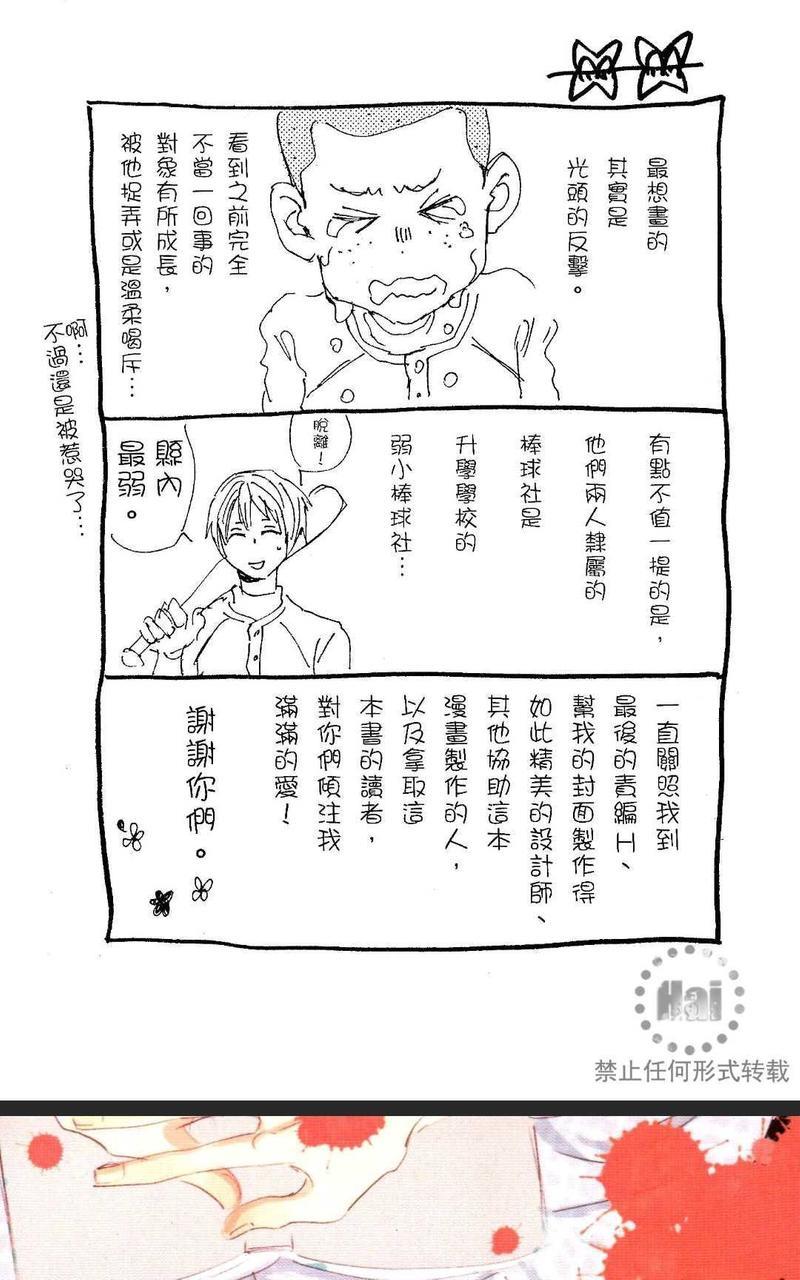 最想畫的
其實是
光頭的反擊。
看到之前完全
不當一回事的
對象有所成長，
被他捉弄或是溫柔喝斥…
啊…
不過還是被惹哭了…
有點不值一提的是，
他們兩人隸屬的
棒球社是
升學學校的
弱小棒球社…
脫離！
縣內
最弱。
一直關照我到
最後的責編H、
幫我的封面製作得
如此精美的設計師、
其他協助這本
漫畫製作的人，
以及拿取這
本書的讀者，
對你們傾注我
滿滿的愛！
謝謝你們。
Hai
禁止任何形式转载